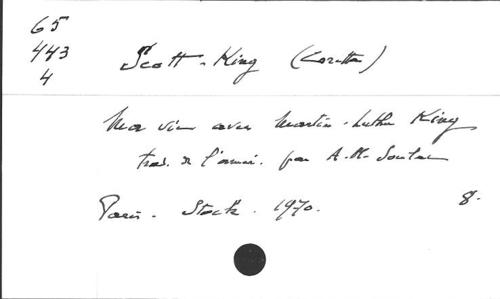 65
443
4
Scott-King (Coretta)
Ma vie avec Martin-Luther King
trad. de l'améri. par A.-M. Soulac
Paris. Stock. 1970. 8.